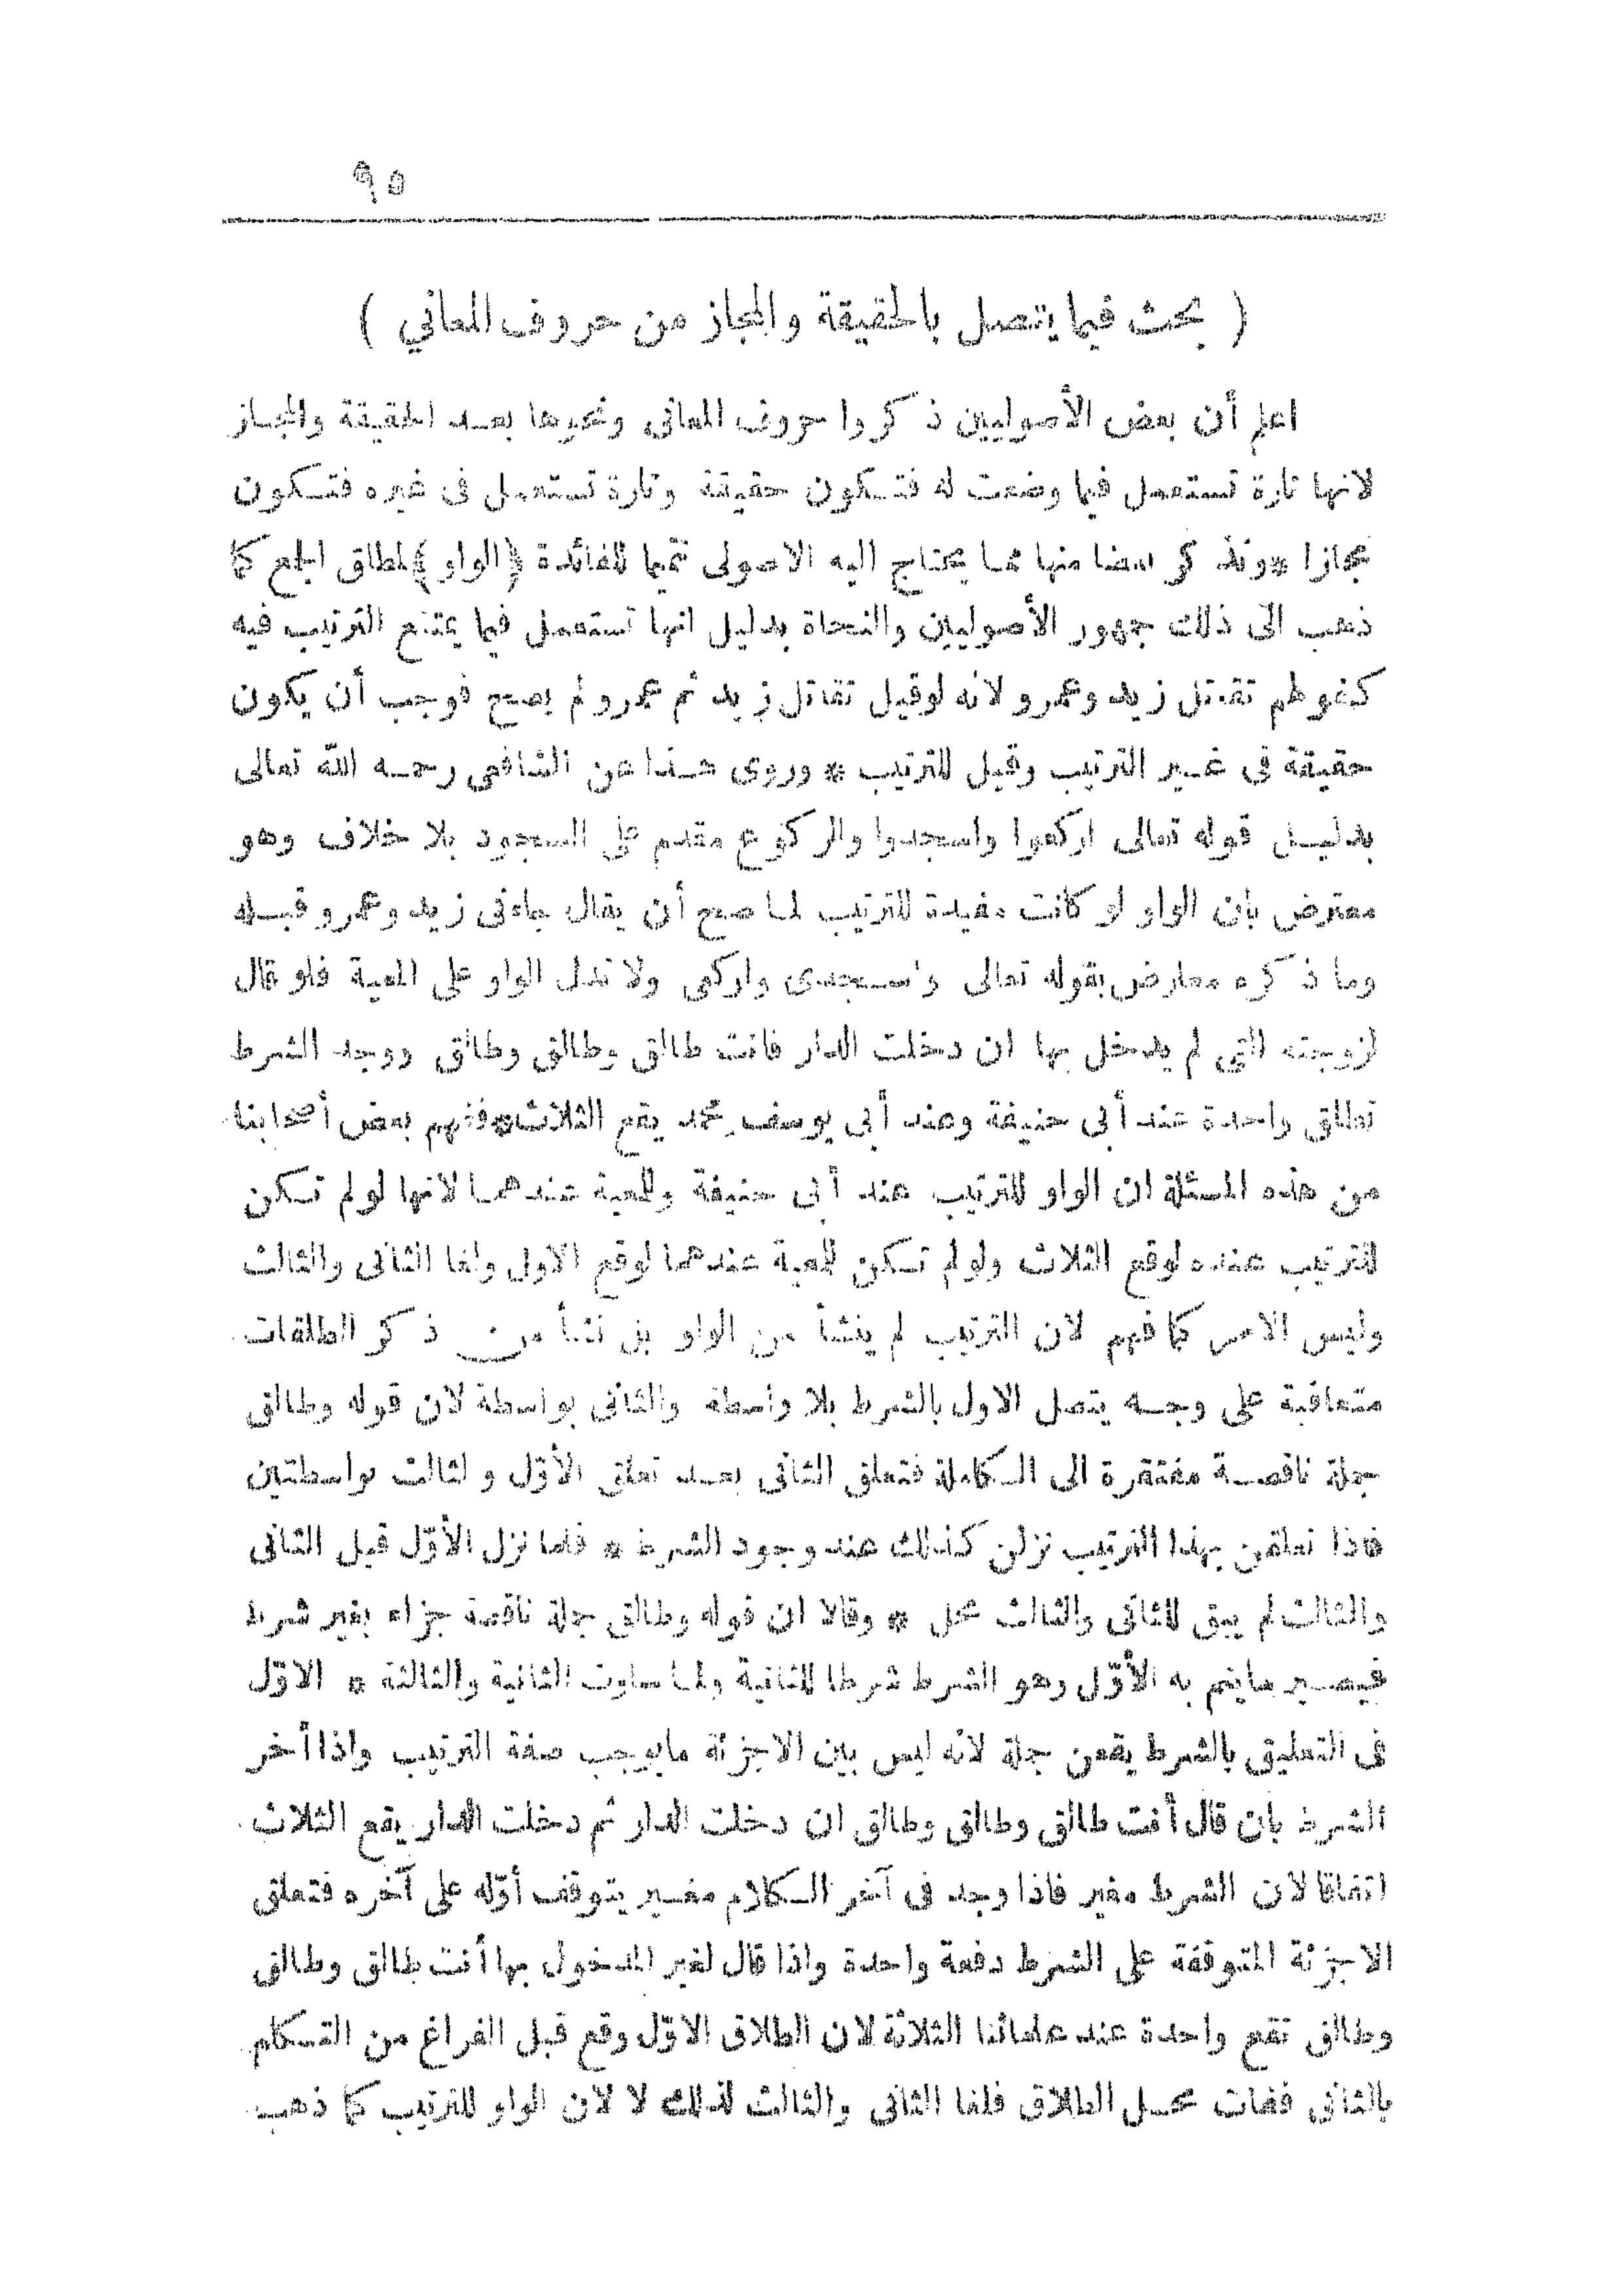 ٩٥
( بحث فيما يتصل بالحقيقة والمجاز من حروف المعاني )
اعلم أن بعض الأصوليين ذكروا حروف المعانى ونحوها بعد الحقيقة والمجاز
لانها تارة تستعمل فيما وضعت له فتكون حقيقة وتارة تستعمل فى غيره فتكون
مجازا * ونذكر بعضا منها مما يحتاج اليه الاصولى تتميا للفائدة (الواو) لمطلق الجمع كما
ذهب الى ذلك جمهور الأصوليين والنحاة بدليل انها تستعمل فيما يمتنع الترتيب فيه
كقولهم تقاتل زيد وعمرو لانه لوقيل تقاتل زيد ثم عمرو لم يصح فوجب أن يكون
حقيقة فى غير الترتيب وقيل للترتيب * وروى هذا عن الشافعى رحمه الله تعالى
بدليل قوله تعالى اركعوا واسجدوا والركوع مقدم على السجود بلا خلاف وهو
معترض بان الواو لو كانت مفيدة للترتيب لما صح أن يقال جاءنى زيد وعمرو قبله
وما ذكره معارض بقوله تعالى واسجدى واركعى ولا تدل الواو على المعية فلو قال
لزوجته التى لم يدخل بها ان دخلت الدار فانت طالق وطالق وطالق ووجد الشرط
تطلق واحدة عند أبى حنيفة وعند أبى يوسف ومحمد يقع الثلاث * ففهم بعض أصحابنا
من هذه المسئلة ان الواو للترتيب عند أبى حنيفة وللمعية عندهما لانها لو لم تكن
للترتيب عنده لوقع الثلاث ولو لم تكن للمعية عندهما لوقع الاول ولغا الثانى والثالث
وليس الامر كما فهم لان الترتيب لم ينشأ من الواو بل نشأ من ذكر الطلقات
متعاقبة على وجه يتصل الاول بالشرط بلا واسطة والثانى بواسطة لان قوله وطالق
جملة ناقصة مفتقرة الى الكاملة فتعلق الثانى بعد تعلق الأوّل والثالث بواسطتين
فاذا تعلقن بهذا الترتيب نزلن كذلك عند وجود الشرط * فلما نزل الأوّل قبل الثانى
والثالث لم يبق للثانى والثالث محل * وقالا ان قوله وطالق جملة ناقصة جزاء بغير شرط
فيصير مايتم به الأوّل وهو الشرط شرطا للثانية ولما ساوت الثانية والثالثة * الاوّل
فى التعليق بالشرط يقعن جملة لانه ليس بين الاجزئة مايوجب صفة الترتيب واذا أخر
الشرط بان قال أنت طالق وطالق وطالق ان دخلت الدار ثم دخلت الدار يقع الثلاث
اتفاقا لان الشرط مغير فاذا وجد فى آخر الكلام مغير يتوقف أوّله على آخره فتعلق
الاجزئة المتوقفة على الشرط دفعة واحدة واذا قال لغير المدخول بها أنت طالق وطالق
وطالق تقع واحدة عند علمائنا الثلاثة لان الطلاق الاوّل وقع قبل الفراغ من التكلم
بالثانى ففات محل الطلاق فلغا الثانى والثالث لذلك لا لان الواو للترتيب كما ذهب